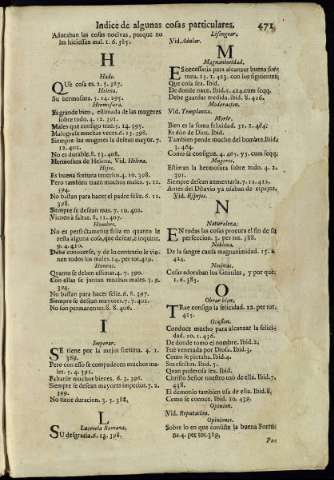 Indice de algunas cosas particulares. 471
Adoraban las cosas nocivas, porque no
les hiciessen mal. 1. 6. 385.
H
Hado.
QUe cosa es. 2. 5. 387.
Helena.
Su hermosura. 5. 14. 295.
Hermosura.
Es grande bien, estimada de las mugeres
sobre todo. 4. 12. 301.
Males que consigo trae. 2. 14. 295.
12. 404.
No es durable. 8. 13. 408.
Hermosura de Helena. Vid. Helena.
Hijos.
Es buena fortuna tenerlos. 4. 10. 398.
Pero tambien traen muchos males. 5. 12.
394.
No bastan para hacer al padre feliz. 6. 11.
398.
Siempre se desean mas. 7. 11. 402.
Hombre.
No es perfectamente feliz en quanto le
resta alguna cosa, que desear, è inquirir.
9. 4. 410.
Debe conocerse, y de lo contrario le vienen
todos los males. 14. per tot. 419.
Honras.
Quanto se deben estimar. 4. 7. 390.
Con ellas se juntan muchos males. 5. 7.
394.
No bastan para hacer felíz. 6. 8. 397.
Siempre se desean mayores. 7. 7. 402.
No son permanentes. 8. 8. 406.
I
Imperar.
SE tiene por la mejor fortuna. 4. 1.
389.
Pero con esso se compadecen muchos males.
5. 4. 391.
Es hacerse muchos bienes. 6. 3. 396.
Siempre se desean mayores imperios. 7. 2.
399.
No tiene duracion. 3. 5. 388.
L
Lucrecia Romana.
SU desgracia. 6. 13. 398.
Lisongear.
Vid. Adular.
M
Magnanimidad.
ES necessaria para alcanzar buena fortuna.
15. 1. 423. con los siguientes.
Que cosa sea. Ibid.
De donde nace. Ibid. 2. 424. cum seqq.
Debe guardar medida. Ibid. 8. 426.
Moderacion.
Vid. Templanza.
Muerte.
Bien es la suma felicidad. 31. 1. 464.
Es don de Dios. Ibid.
Tambien pende mucho del hombre. Ibid.
3. 464.
Como se consigue. 4. 465. 75. cum seqq.
Mugeres.
Estiman la hermosura sobre todo. 4. 2.
301.
Siempre desean aumentarla. 7. 12. 403.
Vid. Esposos.
N
Naturaleza.
EN todas las cosas procura el fin de su
perfeccion. 3. per tot. 388.
Nobleza.
De la sangre causa magnanimidad. 15. 4.
425.
Nocivas.
Cosas adoraban los Gentiles, y por què.
1. 6. 385.
O
Obrar bien.
TRae consigo la felicidad. 22. per tot.
425.
Ocasion.
Conduce mucho para alcanzar la felicidad.
20. 1. 436.
De donde tomò el nombre. Ibid. 2.
Fue venerada por Diosa. Ibid. 3.
Como se pintaba. Ibid. 4.
Ser escasa. Ibid. 5.
Quan poderosa sea. Ibid.
Christo Señor nuestro usò de ella. Ibid. 7.
438.
El demonio tambien usa de ella. Ibid. 8.
Como se conoce. Ibid. 10. 439.
Opinion.
Vid. Reputacion.
Opiniones.
Sobre lo en que consiste la buena Fortuna.
4. per tot. 389.
Pac